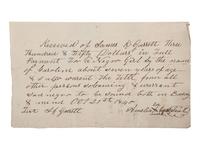 Received of James D Garrett Three
Hundred & Fifty Dollars in full
Payment for a Negro Girl by the name
of Caroline about seven years of age
& I do warrant the Title from all
other persons & warrant
Said negro to be sound both in Body
& mind Oct 21st 1840.
Test Garrett